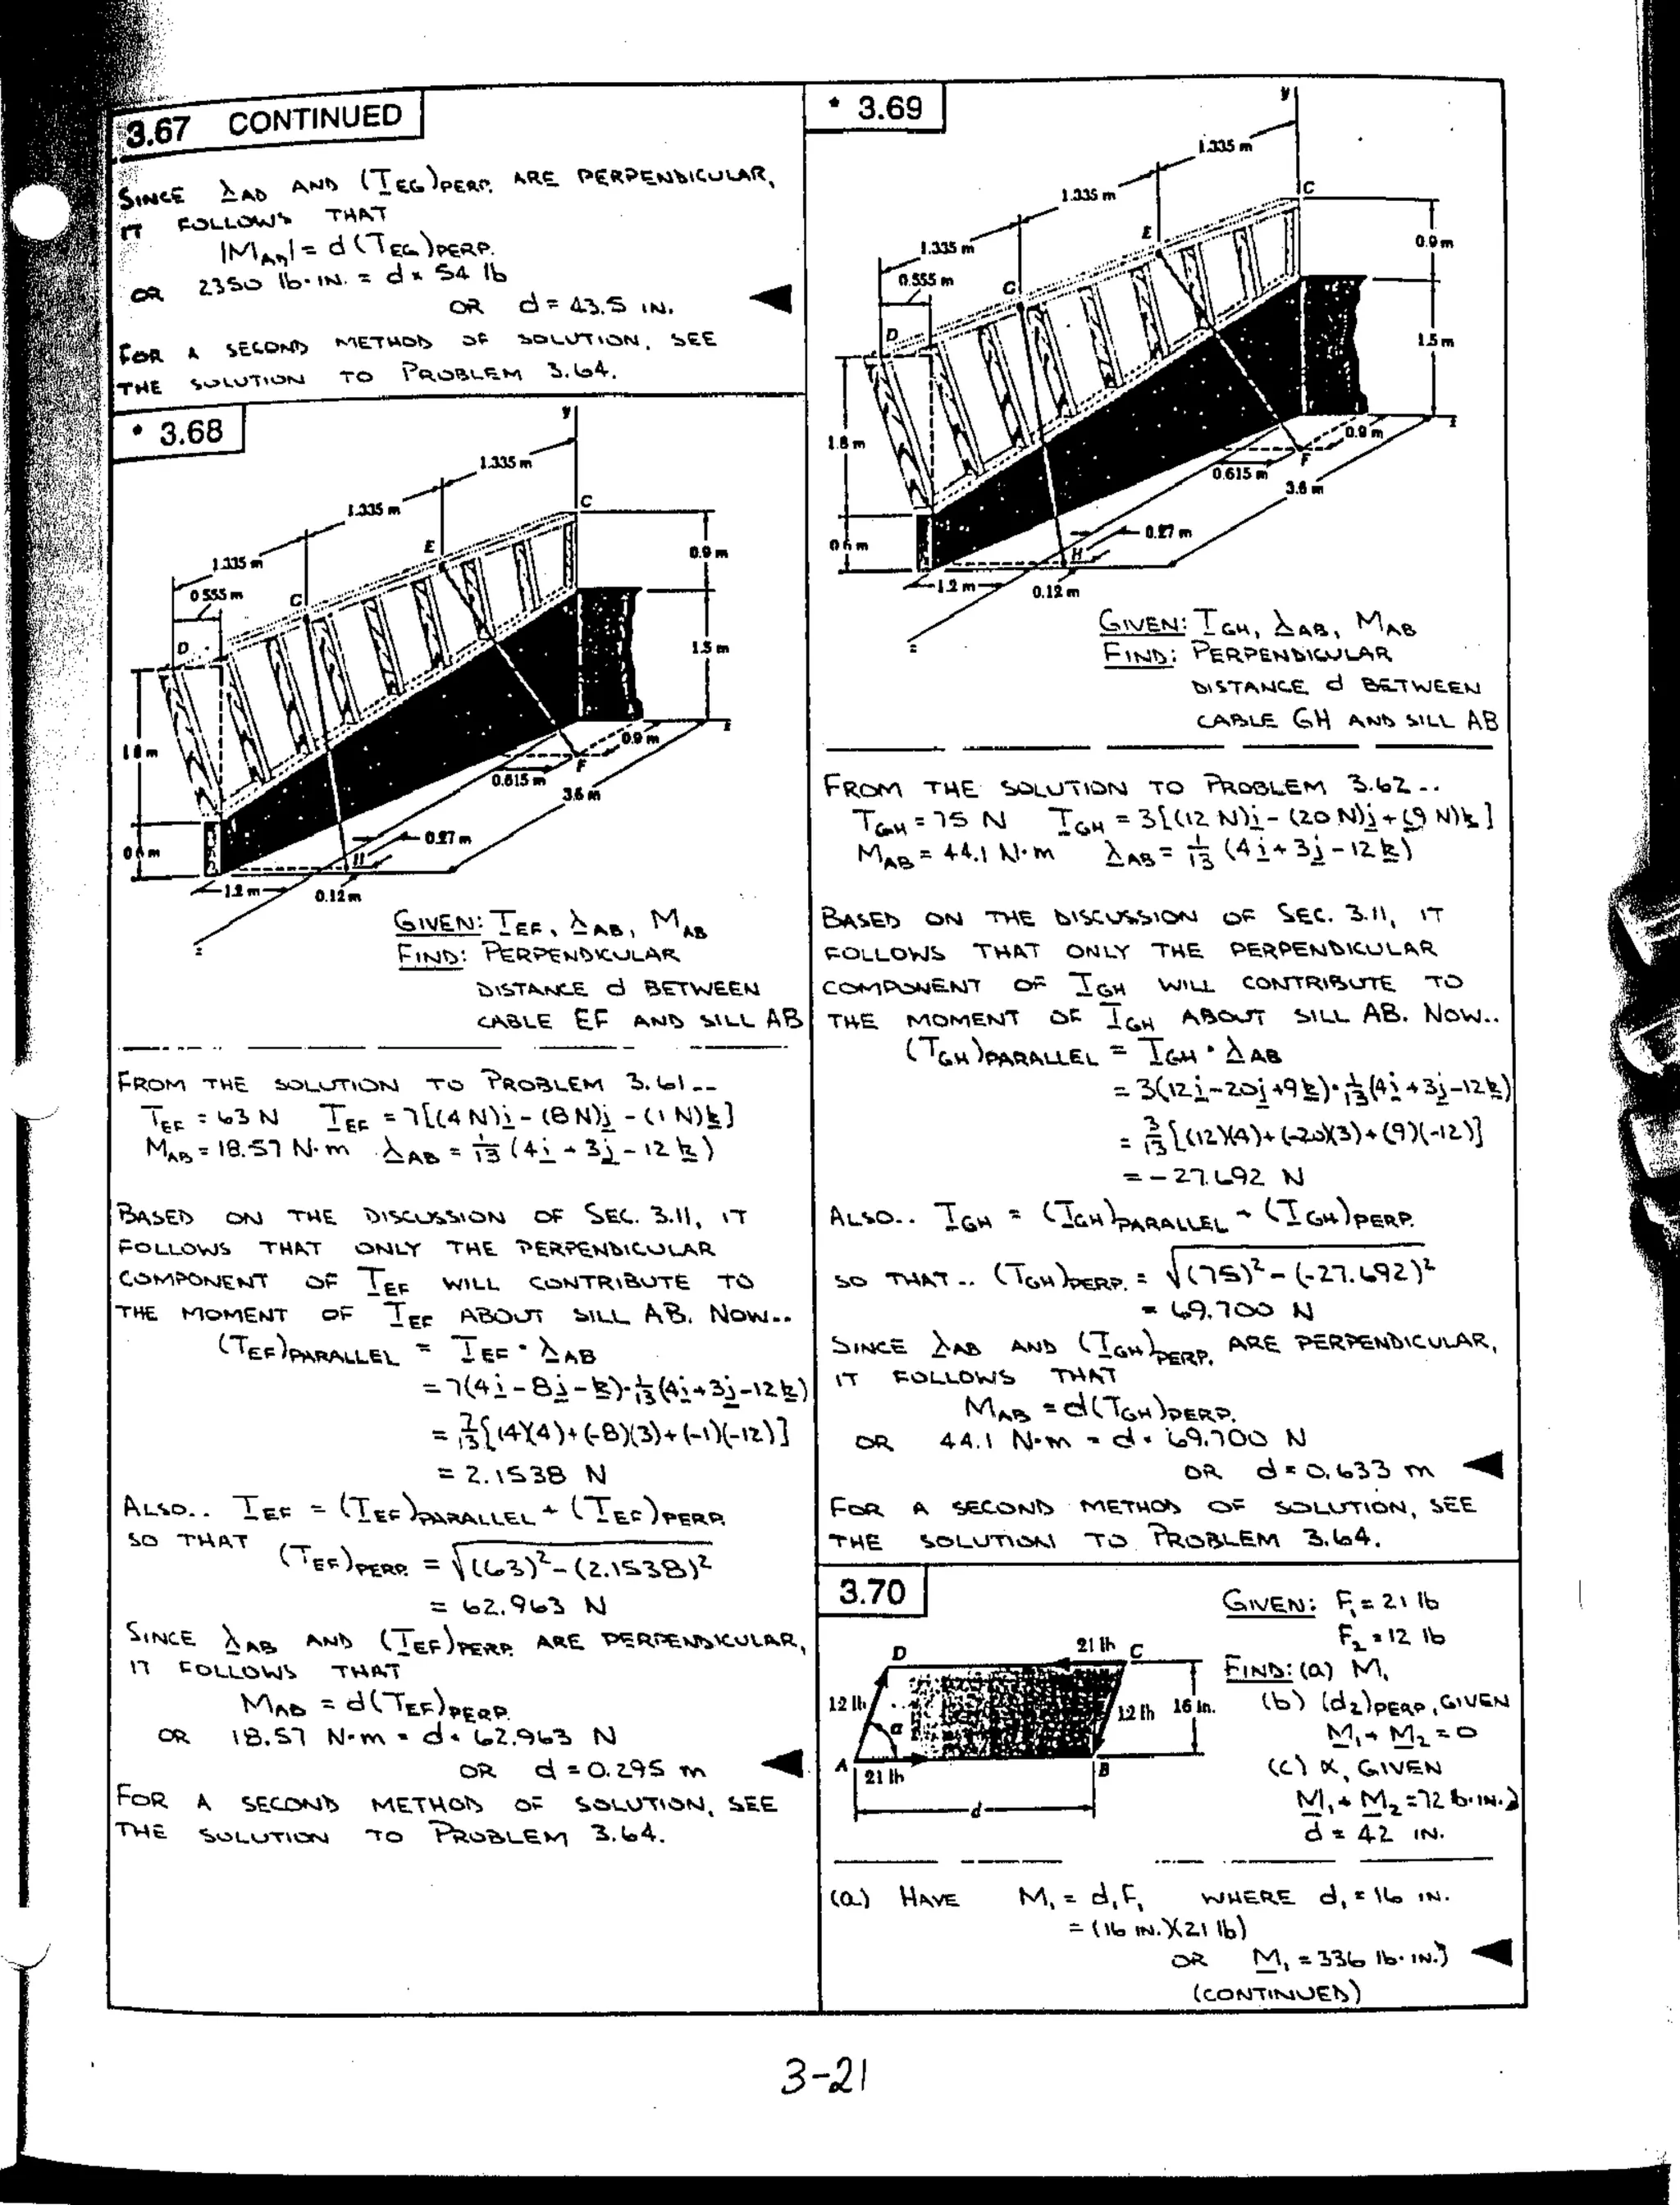 3.67 CONTINUED
SINCE λAD AND (TEG)PERP. ARE PERPENDICULAR,
IT FOLLOWS THAT
|MAD| = d(TEG)PERP.
OR 2350 lb·IN. = d × 54 lb
OR d = 43.5 IN.
FOR A SECOND METHOD OF SOLUTION, SEE
THE SOLUTION TO PROBLEM 3.64.
* 3.68
y
1.335 m
C
1.335 m
E
0.9 m
1.335 m
0.555 m
G
D
1.5 m
1.8 m
z
0.9 m
F
0.615 m
3.6 m
0.27 m
0.6 m
H
1.2 m
0.12 m
GIVEN: TEF, λAB, MAB
FIND: PERPENDICULAR
DISTANCE d BETWEEN
CABLE EF AND SILL AB
FROM THE SOLUTION TO PROBLEM 3.61..
TEF = 63 N TEF = 7[(4 N)i - (8 N)j - (1 N)k]
MAB = 18.57 N·m λAB = 1/13 (4i + 3j - 12k)
BASED ON THE DISCUSSION OF SEC. 3.11, IT
FOLLOWS THAT ONLY THE PERPENDICULAR
COMPONENT OF TEF WILL CONTRIBUTE TO
THE MOMENT OF TEF ABOUT SILL AB. NOW..
(TEF)PARALLEL = TEF · λAB
= 7(4i - 8j - k)·1/13(4i + 3j - 12k)
= 7/13[(4)(4) + (-8)(3) + (-1)(-12)]
= 2.1538 N
ALSO.. TEF = (TEF)PARALLEL + (TEF)PERP.
SO THAT
(TEF)PERP. = √(63)² - (2.1538)²
= 62.963 N
SINCE λAB AND (TEF)PERP. ARE PERPENDICULAR,
IT FOLLOWS THAT
MAB = d(TEF)PERP.
OR 18.57 N·m = d × 62.963 N
OR d = 0.295 m
FOR A SECOND METHOD OF SOLUTION, SEE
THE SOLUTION TO PROBLEM 3.64.
* 3.69
y
1.335 m
C
1.335 m
E
0.9 m
1.335 m
0.555 m
G
D
1.5 m
1.8 m
0.9 m
F
0.615 m
3.6 m
0.27 m
0.6 m
H
1.2 m
0.12 m
z
GIVEN: TGH, λAB, MAB
FIND: PERPENDICULAR
DISTANCE d BETWEEN
CABLE GH AND SILL AB
FROM THE SOLUTION TO PROBLEM 3.62..
TGH = 75 N TGH = 3[(12 N)i - (20 N)j + (9 N)k]
MAB = 44.1 N·m λAB = 1/13 (4i + 3j - 12k)
BASED ON THE DISCUSSION OF SEC. 3.11, IT
FOLLOWS THAT ONLY THE PERPENDICULAR
COMPONENT OF TGH WILL CONTRIBUTE TO
THE MOMENT OF TGH ABOUT SILL AB. NOW..
(TGH)PARALLEL = TGH · λAB
= 3(12i - 20j + 9k)·1/13(4i + 3j - 12k)
= 3/13[(12)(4) + (-20)(3) + (9)(-12)]
= -27.692 N
ALSO.. TGH = (TGH)PARALLEL + (TGH)PERP.
SO THAT.. (TGH)PERP. = √(75)² - (-27.692)²
= 69.700 N
SINCE λAB AND (TGH)PERP. ARE PERPENDICULAR,
IT FOLLOWS THAT
MAB = d(TGH)PERP.
OR 44.1 N·m = d × 69.700 N
OR d = 0.633 m
FOR A SECOND METHOD OF SOLUTION, SEE
THE SOLUTION TO PROBLEM 3.64.
3.70
D
21 lb
C
12 lb
α
12 lb
16 in.
A
21 lb
B
d
GIVEN: F1 = 21 lb
F2 = 12 lb
FIND: (a) M1
(b) (d2)PERP, GIVEN
M1 + M2 = 0
(c) α, GIVEN
M1 + M2 = 72 lb·IN.
d = 42 IN.
(a) HAVE M1 = d1F1 WHERE d1 = 16 IN.
= (16 IN.)(21 lb)
OR M1 = 336 lb·IN.
(CONTINUED)
3-21